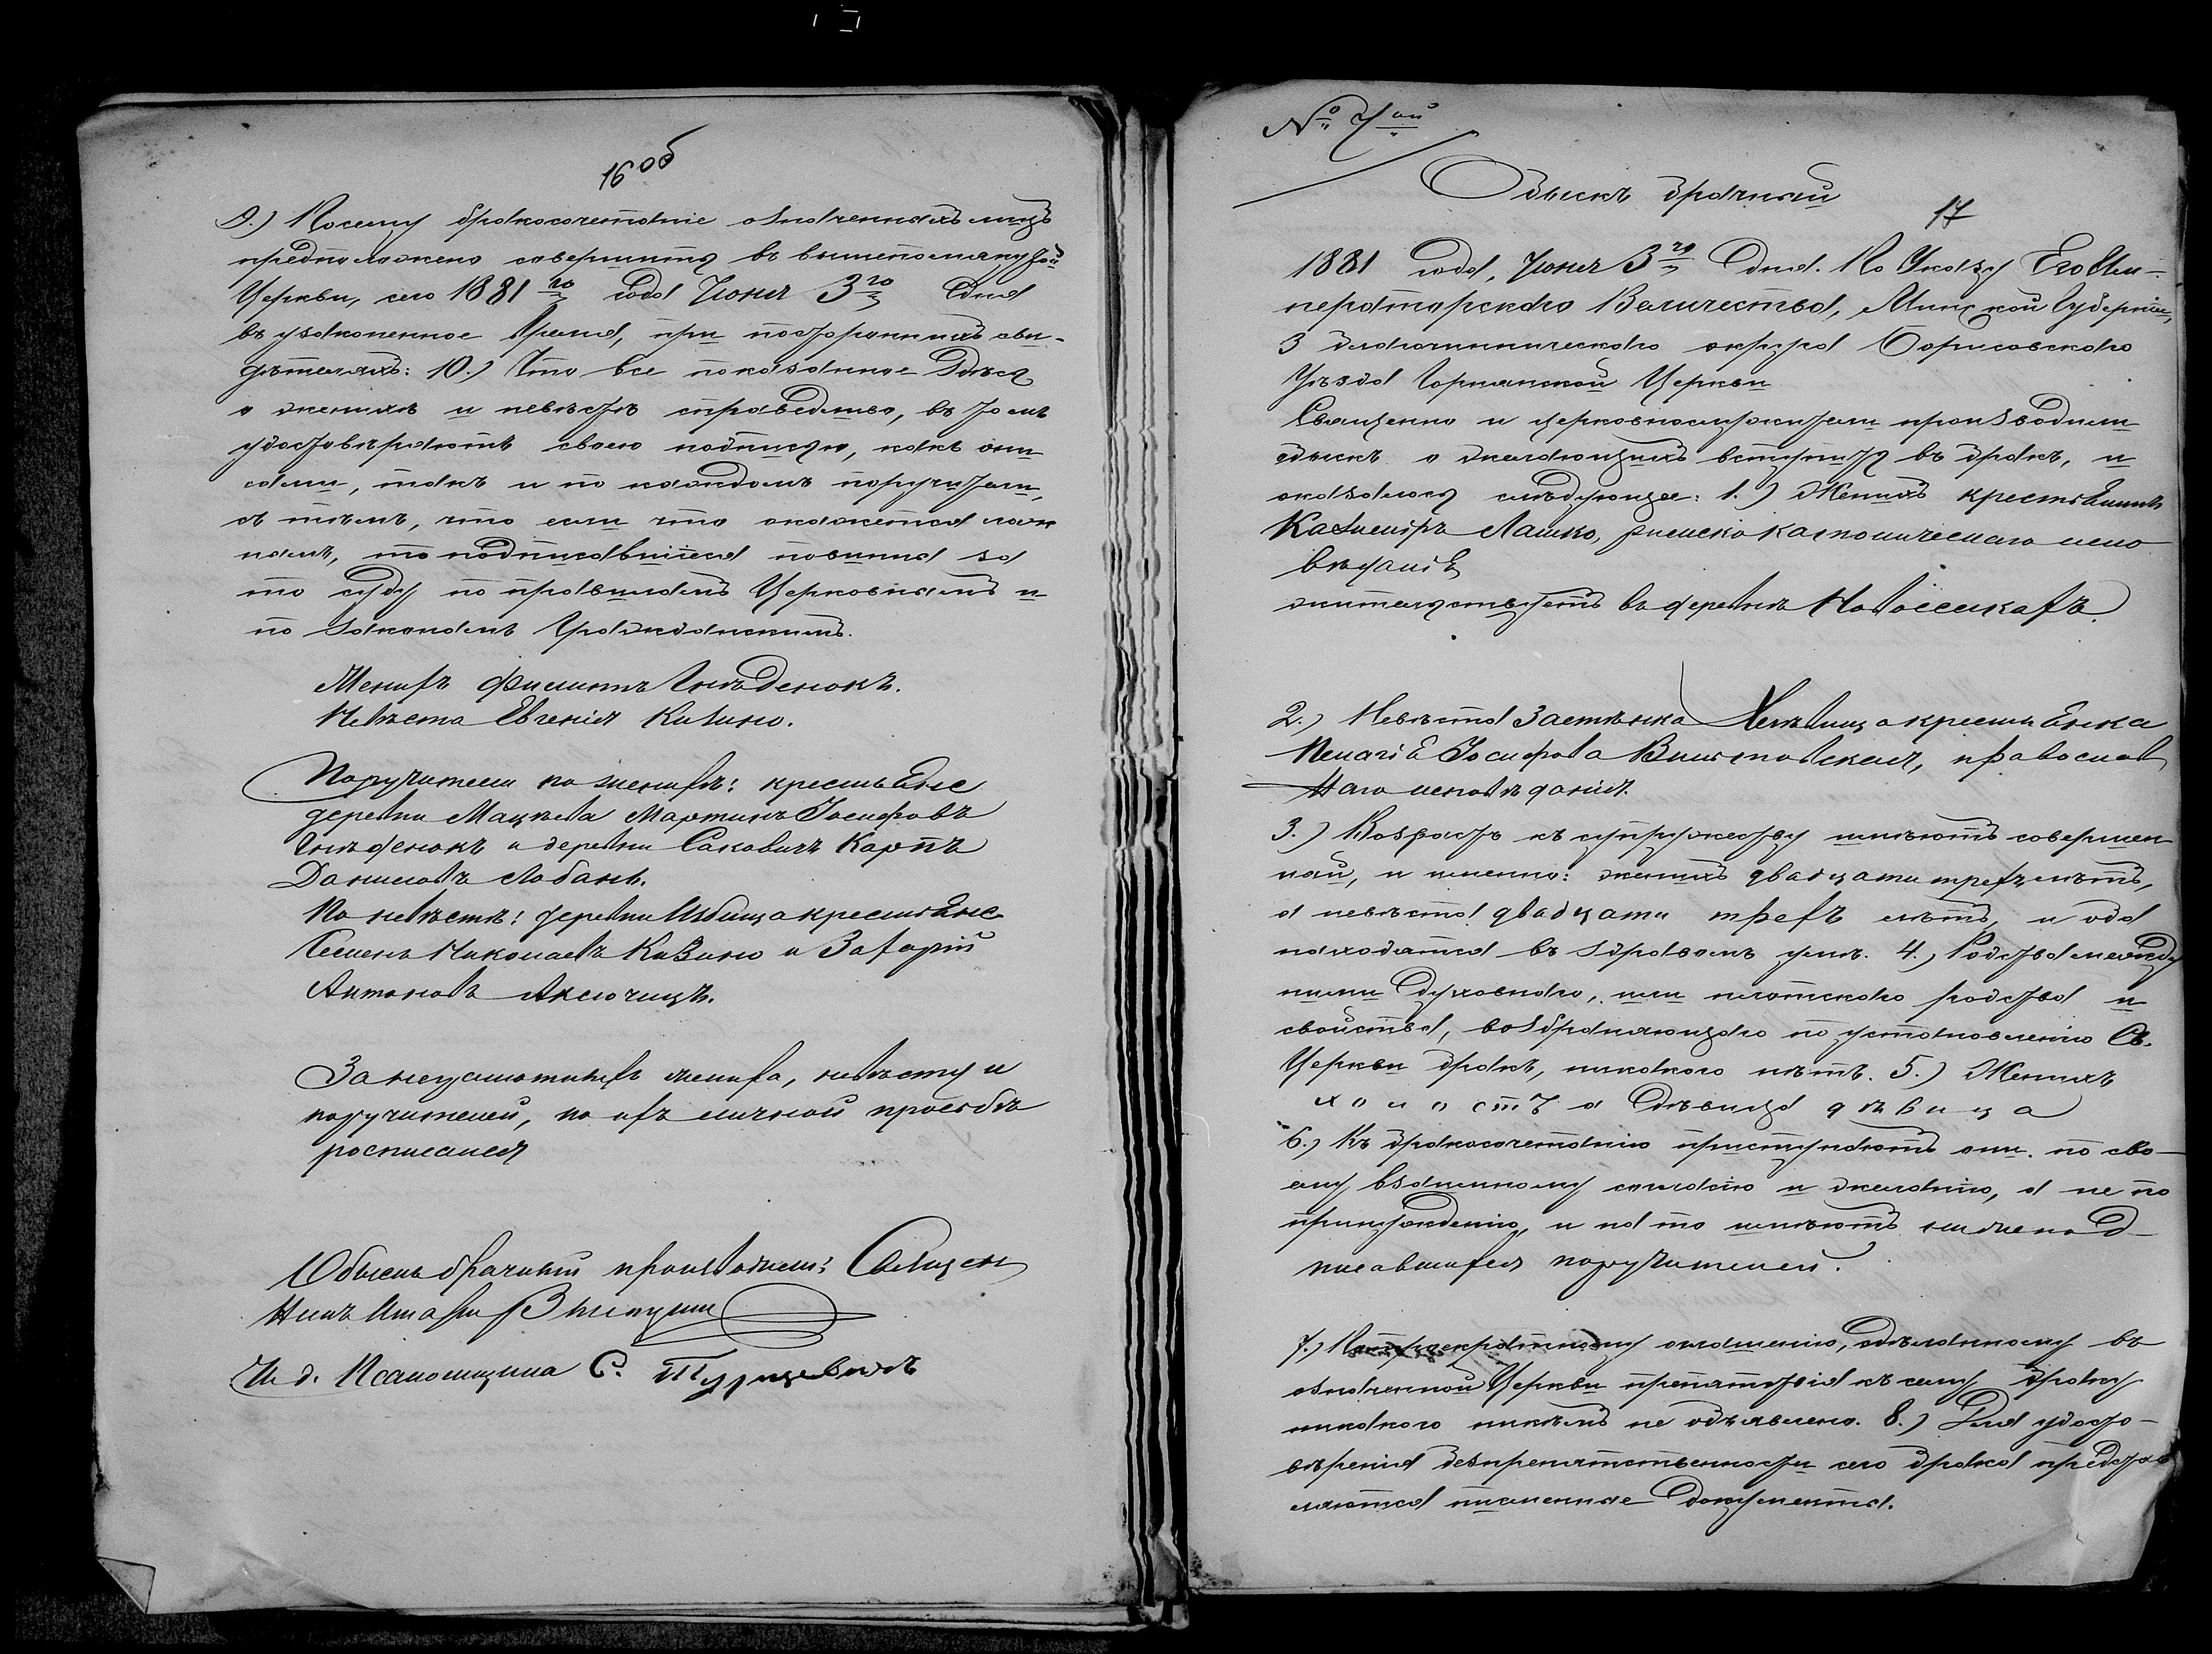 16 об
9.) Посему бракосочетаніе означенныхъ лицъ
предположено совершить въ вышепомянутой
Церкви, сего 1881 го года Іюня 3 го дня
въ узаконенное время, при постороннихъ сви-
дѣтеляхъ: 10.) Что все показанное здѣсь
о женихѣ и невѣстѣ справедливо, въ томъ
удостовѣряютъ своею подписью, какъ они
сами, такъ и по каждомъ поручители,
съ тѣмъ, что если что окажется лож
нымъ, то подписавшіеся повинны за
то суду по правиламъ Церковнымъ и
по законамъ Гражданскимъ.
Женихъ Филиппъ Гнѣденокъ.
Невѣста Евгенія Кизино.
Поручители по женихѣ: крестьяне
деревни Мацѣева Мартинъ Іосифовъ
Гнѣденокъ и деревни Саковичъ Карпъ
Даниловъ Лобанъ.
По невѣстѣ: деревни Избища крестьяне
Семенъ Николаевъ Кизино и Захарій
Антоновъ Аксючицъ.
За неграмотныхъ жениха, невѣсту и
поручителей, по ихъ личной просьбѣ
росписался
Обыскъ брачный производили: Священ
никъ
И. д. Псаломщика С. Турцевичъ
№ 7 ой
Обыскъ брачный
17
1881 года, Іюня 3 го дня. По Указу Его Им-
ператорскаго Величества, Минской Губерніи,
3 благочинническаго округа Борисовскаго
Уѣзда Горнянской Церкви
Священно и церковнослужители производили
обыскъ о желающихъ вступить въ бракъ, и
оказалось слѣдующее: 1.) Женихъ крестьянинъ
Казиміръ Лашко, римско католическаго испо
вѣданія
жительствуетъ въ деревнѣ Новоселкахъ.
2.) Невѣста Застѣнка крестьянка
Пелагія Іосифова православ
наго исповѣданія.
3.) Возрастъ къ супружеству имѣютъ совершен
ный, и именно: женихъ двадцати трехъ лѣтъ,
а невѣста двадцати трехъ лѣтъ, и оба
находятся въ здравомъ умѣ. 4.) Родства между
ними духовнаго, или плотскаго родства и
свойства, возбраняющаго по установленію Св.
Церкви бракъ, никакого нѣтъ. 5.) Женихъ
холостъ а дѣвица дѣвица
6.) Къ бракосочетанію приступаютъ они по сво-
ему взаимному согласію и желанію, а не по
принужденію, и на то имѣютъ нижепод-
писавшихся поручителей.
7.) По троекратному оглашенію, сдѣланному въ
означенной Церкви препятствія къ сему браку
никакого никѣмъ не объявлено. 8.) Для удосто-
вѣренія безпрепятственности сего брака представ
ляются письменные документы.